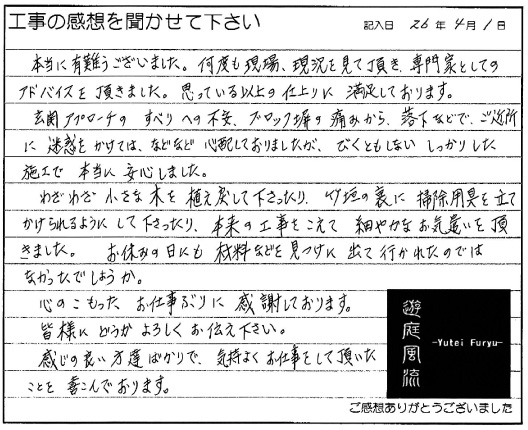 工事の感想を聞かせて下さい 記入日 26年4月1日
本当に有難うございました。何度も現場、現況を見て頂き、専門家としての
アドバイスを頂きました。思っている以上の仕上りに満足しております。
玄関アプローチのすべりへの不安、ブロック塀の痛みから、落下などで、ご近所
に迷惑をかけては、などなど心配しておりましたが、びくともしないしっかりした
施工で本当に安心しました。
わざわざ小さな木を植え戻して下さったり、竹垣の裏に掃除用具を立て
かけられるようにして下さったり、本来の工事をこえて細やかなお気遣いを頂
きました。お休みの日にも材料などを見つけに出て行かれたのでは
なかったでしょうか。
心のこもったお仕事ぶりに感謝しております。
皆様にどうかよろしくお伝え下さい。
感じの良い方達ばかりで、気持よくお仕事をして頂いた
ことを喜こんでおります。
遊庭風流
-Yutei Furyu-
ご感想ありがとうございました